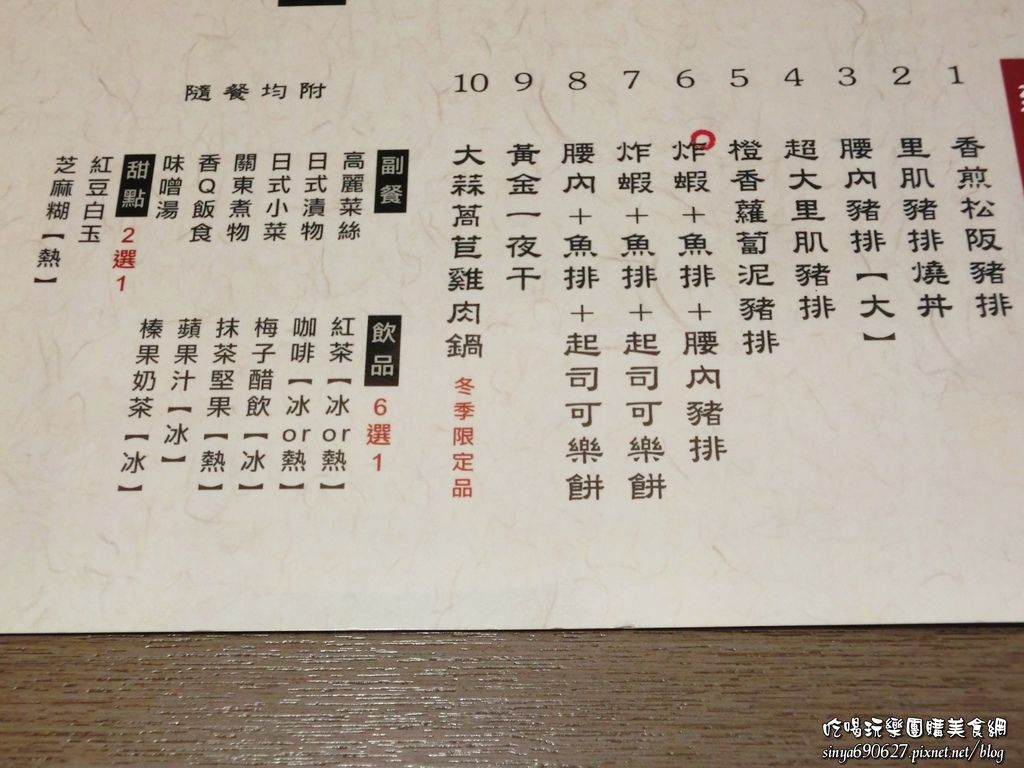 1 香煎松阪豬排
2 里肌豬排燒丼
3 腰內豬排【大】
4 超大里肌豬排
5 橙香蘿蔔泥豬排
6 炸蝦+魚排+腰內豬排
7 炸蝦+魚排+起司可樂餅
8 腰內+魚排+起司可樂餅
9 黃金一夜干
10 大蒜萵苣雞肉鍋 冬季限定品
隨餐均附
副餐
高麗菜絲
日式漬物
日式小菜
關東煮物
香Q飯食
味噌湯
甜點 2選1
紅豆白玉
芝麻糊【熱】
飲品 6選1
紅茶【冰or熱】
咖啡【冰or熱】
梅子醋飲【冰】
抹茶堅果【熱】
蘋果汁【冰】
榛果奶茶【冰】
吃喝玩樂團購美食網
sinya690627.pixnet.net/blog